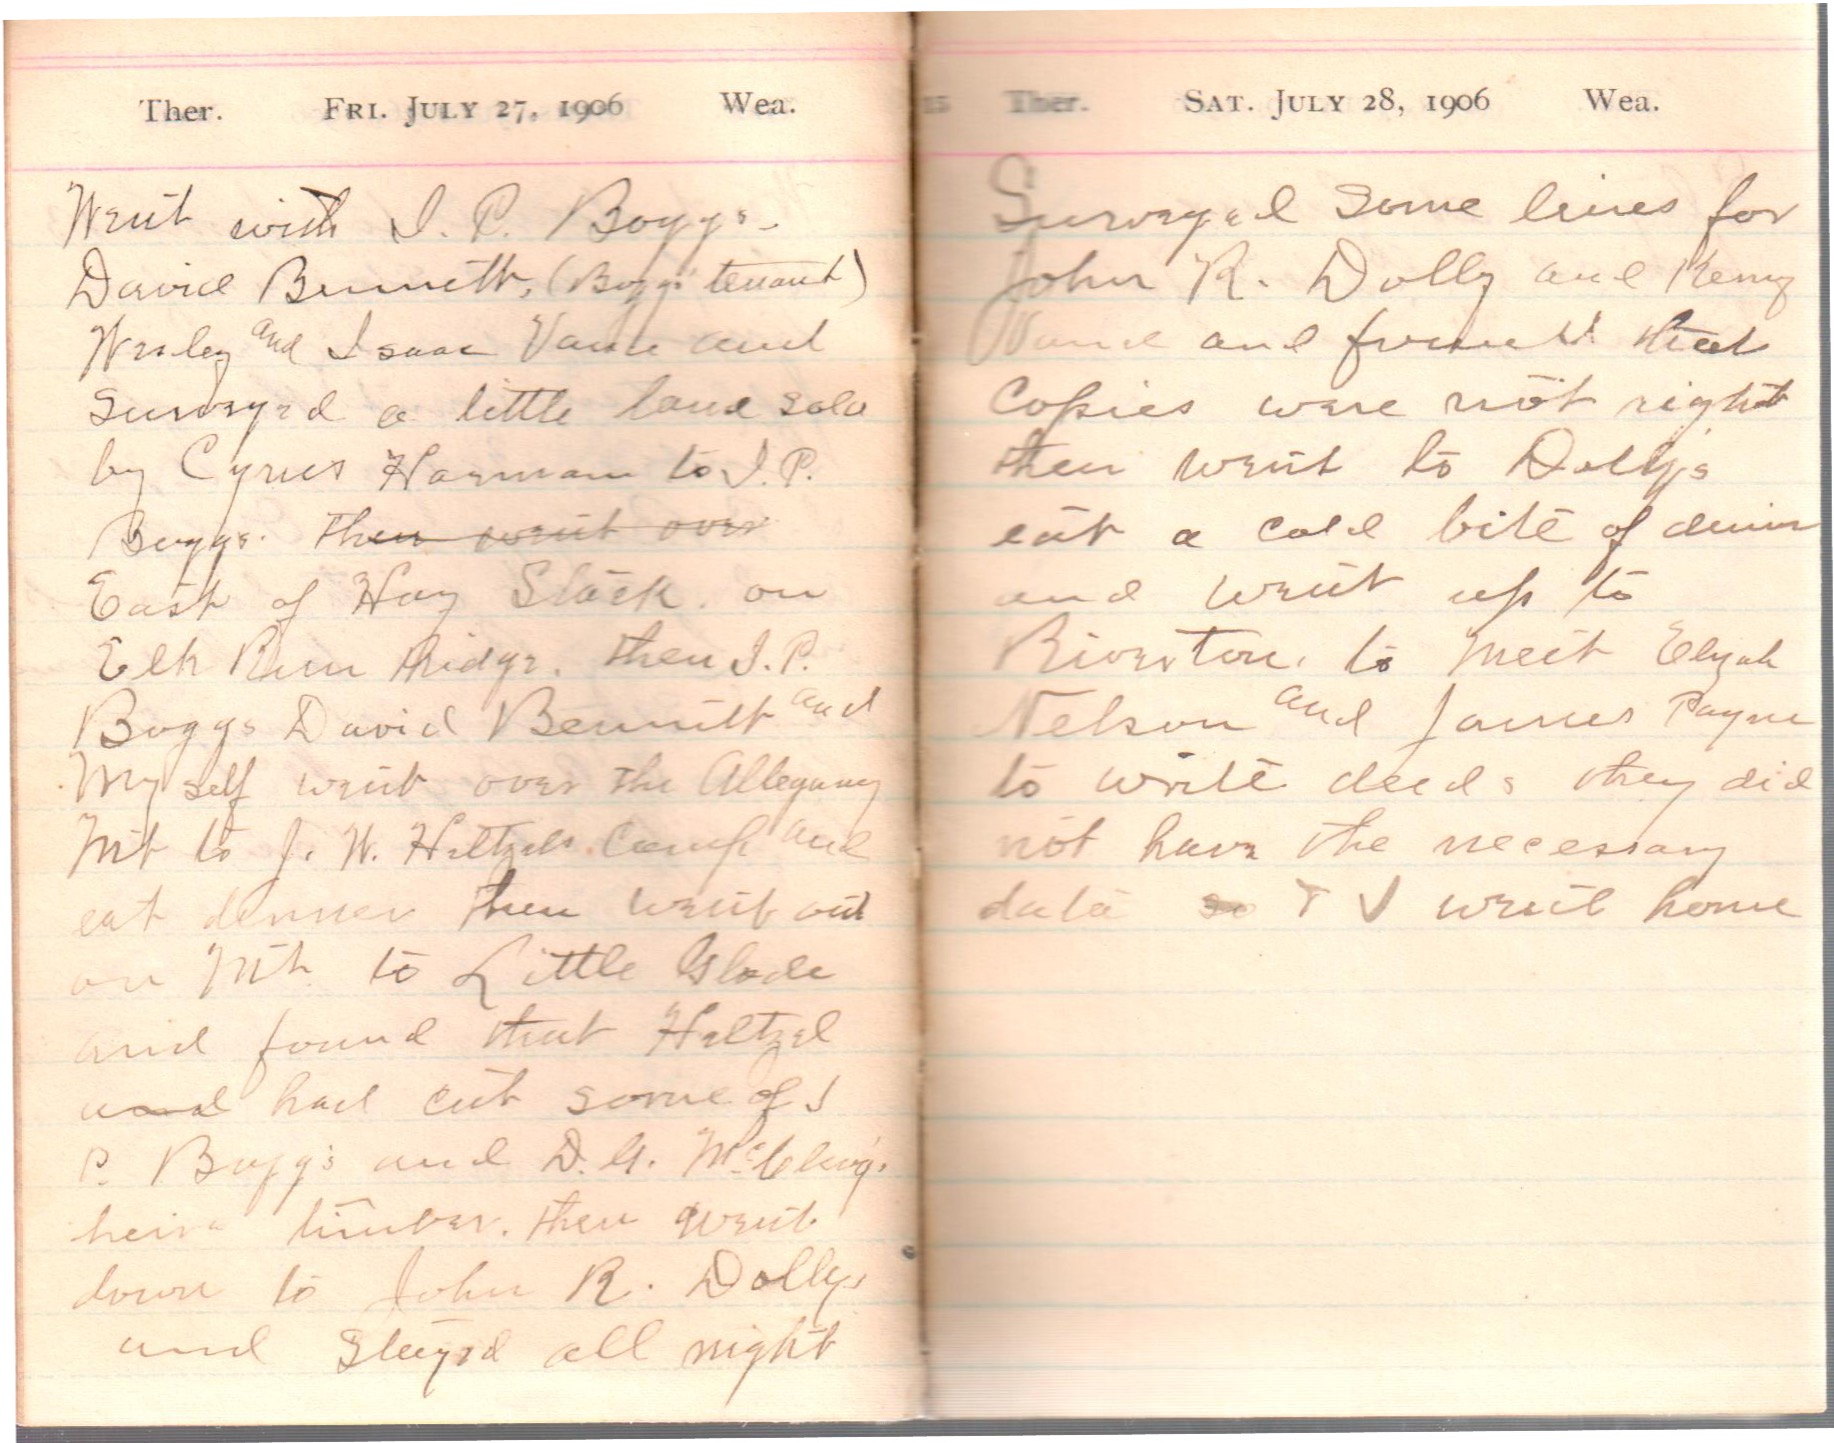 Ther. FRI. JULY 27, 1906 Wea.
Went with I. P. Boggs.
David Bennett, (Boggs' tenant)
Wesley and Isaac Vance and
surveyed a little land sold
by Cyrus Harman to I. P.
Boggs. then went over
East of Hay Stack. on
Elk Run Ridge. then I. P.
Boggs David Bennett and
My self went over the Allegany
Mt to J. W. Heltzels Camp and
eat dinner then went out
on Mt. to Little Glade
and found that Heltzel
had cut some of I
P. Boggs and D. G. McClung's
heirs timber. then went
down to John R. Dollys
and stayed all night
Ther. SAT. JULY 28, 1906 Wea.
Surveyed some lines for
John R. Dolly and Kenny
Vance and found that
copies were not right
then went to Dolly's
eat a cold bite of dinner
and went up to
Riverton. to meet Elijah
Nelson and James Payne
to write deeds they did
not have the necessary
data so I went home